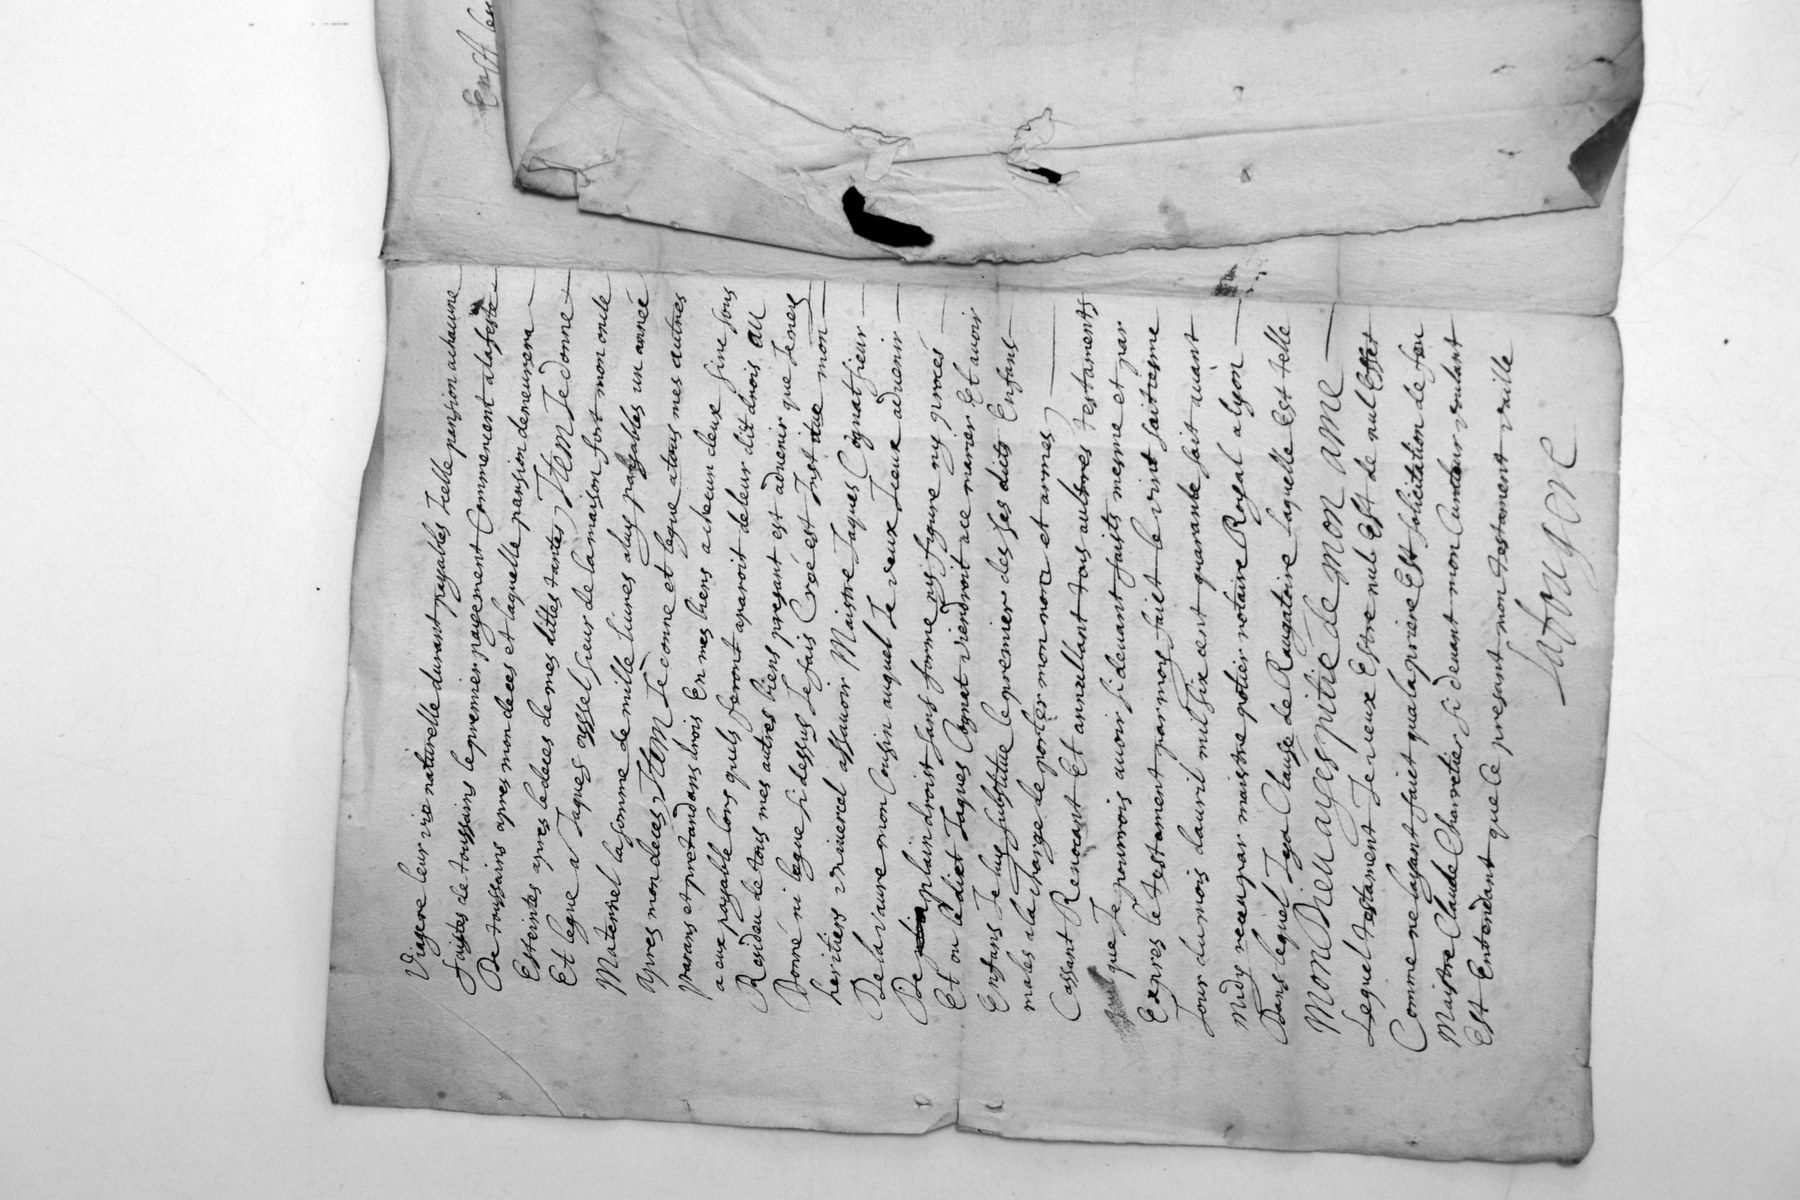 Viagere leur vie naturelle durant payables Icelle pension achacune
faistes de toussains le premier payement Commencent a la feste
De toussains apres mon deces et laquelle pansion demeurera
Esteintes apres le deces de mes dittes tantes Item Je donne
Et legue a Jaques assel sieur de la maison fort mon oncle
Maternel la somme de mille livres aluy payables un année
Apres mon deces Item Je donne et legue a tous mes autres
parans et pretandans drois En mes biens a chacun deux sine sous
a eux payable lors quils seront aparoit de leur dit drois au
Resideu de tous mes autres biens presant est advenir que Je ney
Donné ni legue si dessus Je fais Creé est Inst tue mon
heritiers vniuercel assauoir Maistre Jaques Cognat sieur
De la vaure mon Cousin auquel Je veux Iceux aduenir
De plain droist sans forme ny figure ny procés
Et ou le dict Jaques Cognat viendroit a ce marier Et avoir
Enfans Je luy substitue le premier des ses dicts Enfans
males a la charge de porter mon nom et armes
Cassant Reuocant Et annullant tous aultres testaments
que Je pourrois auoir si deuant faits mesme et par
Expres le testament par moy faict le vint saitiesme
Jour du mois dauril mil six cent quarante sait auant
midy receu par maistre potier notaire Royal a lyon
Dans lequel Jya Clause de Raugatoire laquelle Est telle
mon Dieu ayes pitié de mon ame
Lequel testament Je veux Estre nul Est de nul Effet
Comme ne layant faict qua la priere Est solicitation de feu
Maistre Claude Charretier si deuant mon Curateur vulant
Est Entendant que le presant mon testament vaille
Lafougere